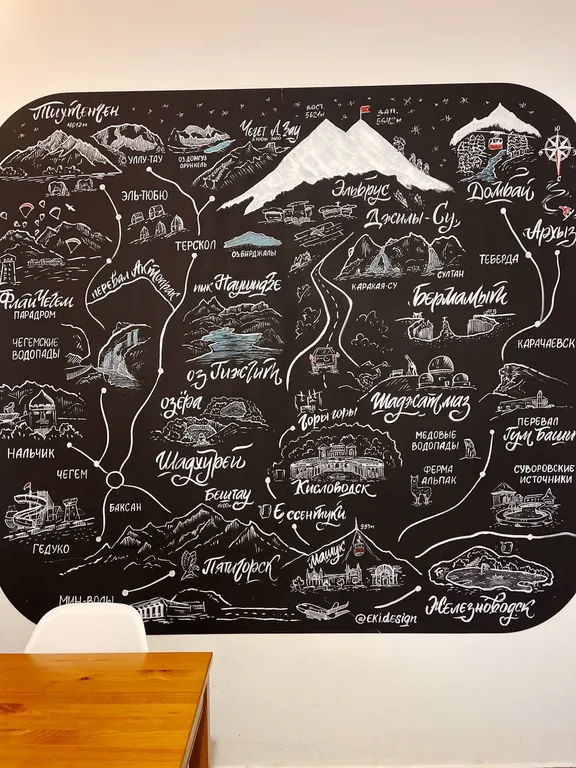 Тиутенчен
4612м
УЛЛУ-ТАУ
ОЗ.ДОНГУЗ
ОРУНКЕЛЬ
Чегет
ВОСТ.
5621м
ЗАП.
5642м
Эльбрус
Джилы-Су
Домбай
Архыз
ЭЛЬ-ТЮБЮ
ТЕРСКОЛ
ОЗ.БИРДЖАЛЫ
КАРАКАЯ-СУ
СУЛТАН
ТЕБЕРДА
ПЕРЕВАЛ АКТОПРАК
ФлайЧегем
ПАРАДРОМ
пик Наушидзе
Бермамыт
КАРАЧАЕВСК
ЧЕГЕМСКИЕ
ВОДОПАДЫ
оз Гижгит
ОЗЁРА
Шадхурей
Горы горы
Шаджатмаз
ПЕРЕВАЛ
Гум Баши
МЕДОВЫЕ
ВОДОПАДЫ
НАЛЬЧИК
ЧЕГЕМ
Кисловодск
ФЕРМА
АЛЬПАК
СУВОРОВСКИЕ
ИСТОЧНИКИ
БАКСАН
Бештау
Ессентуки
ГЕДУКО
993м
Машук
Пятигорск
МИН-ВОДЫ
Железноводск
@EKI.DESIGN